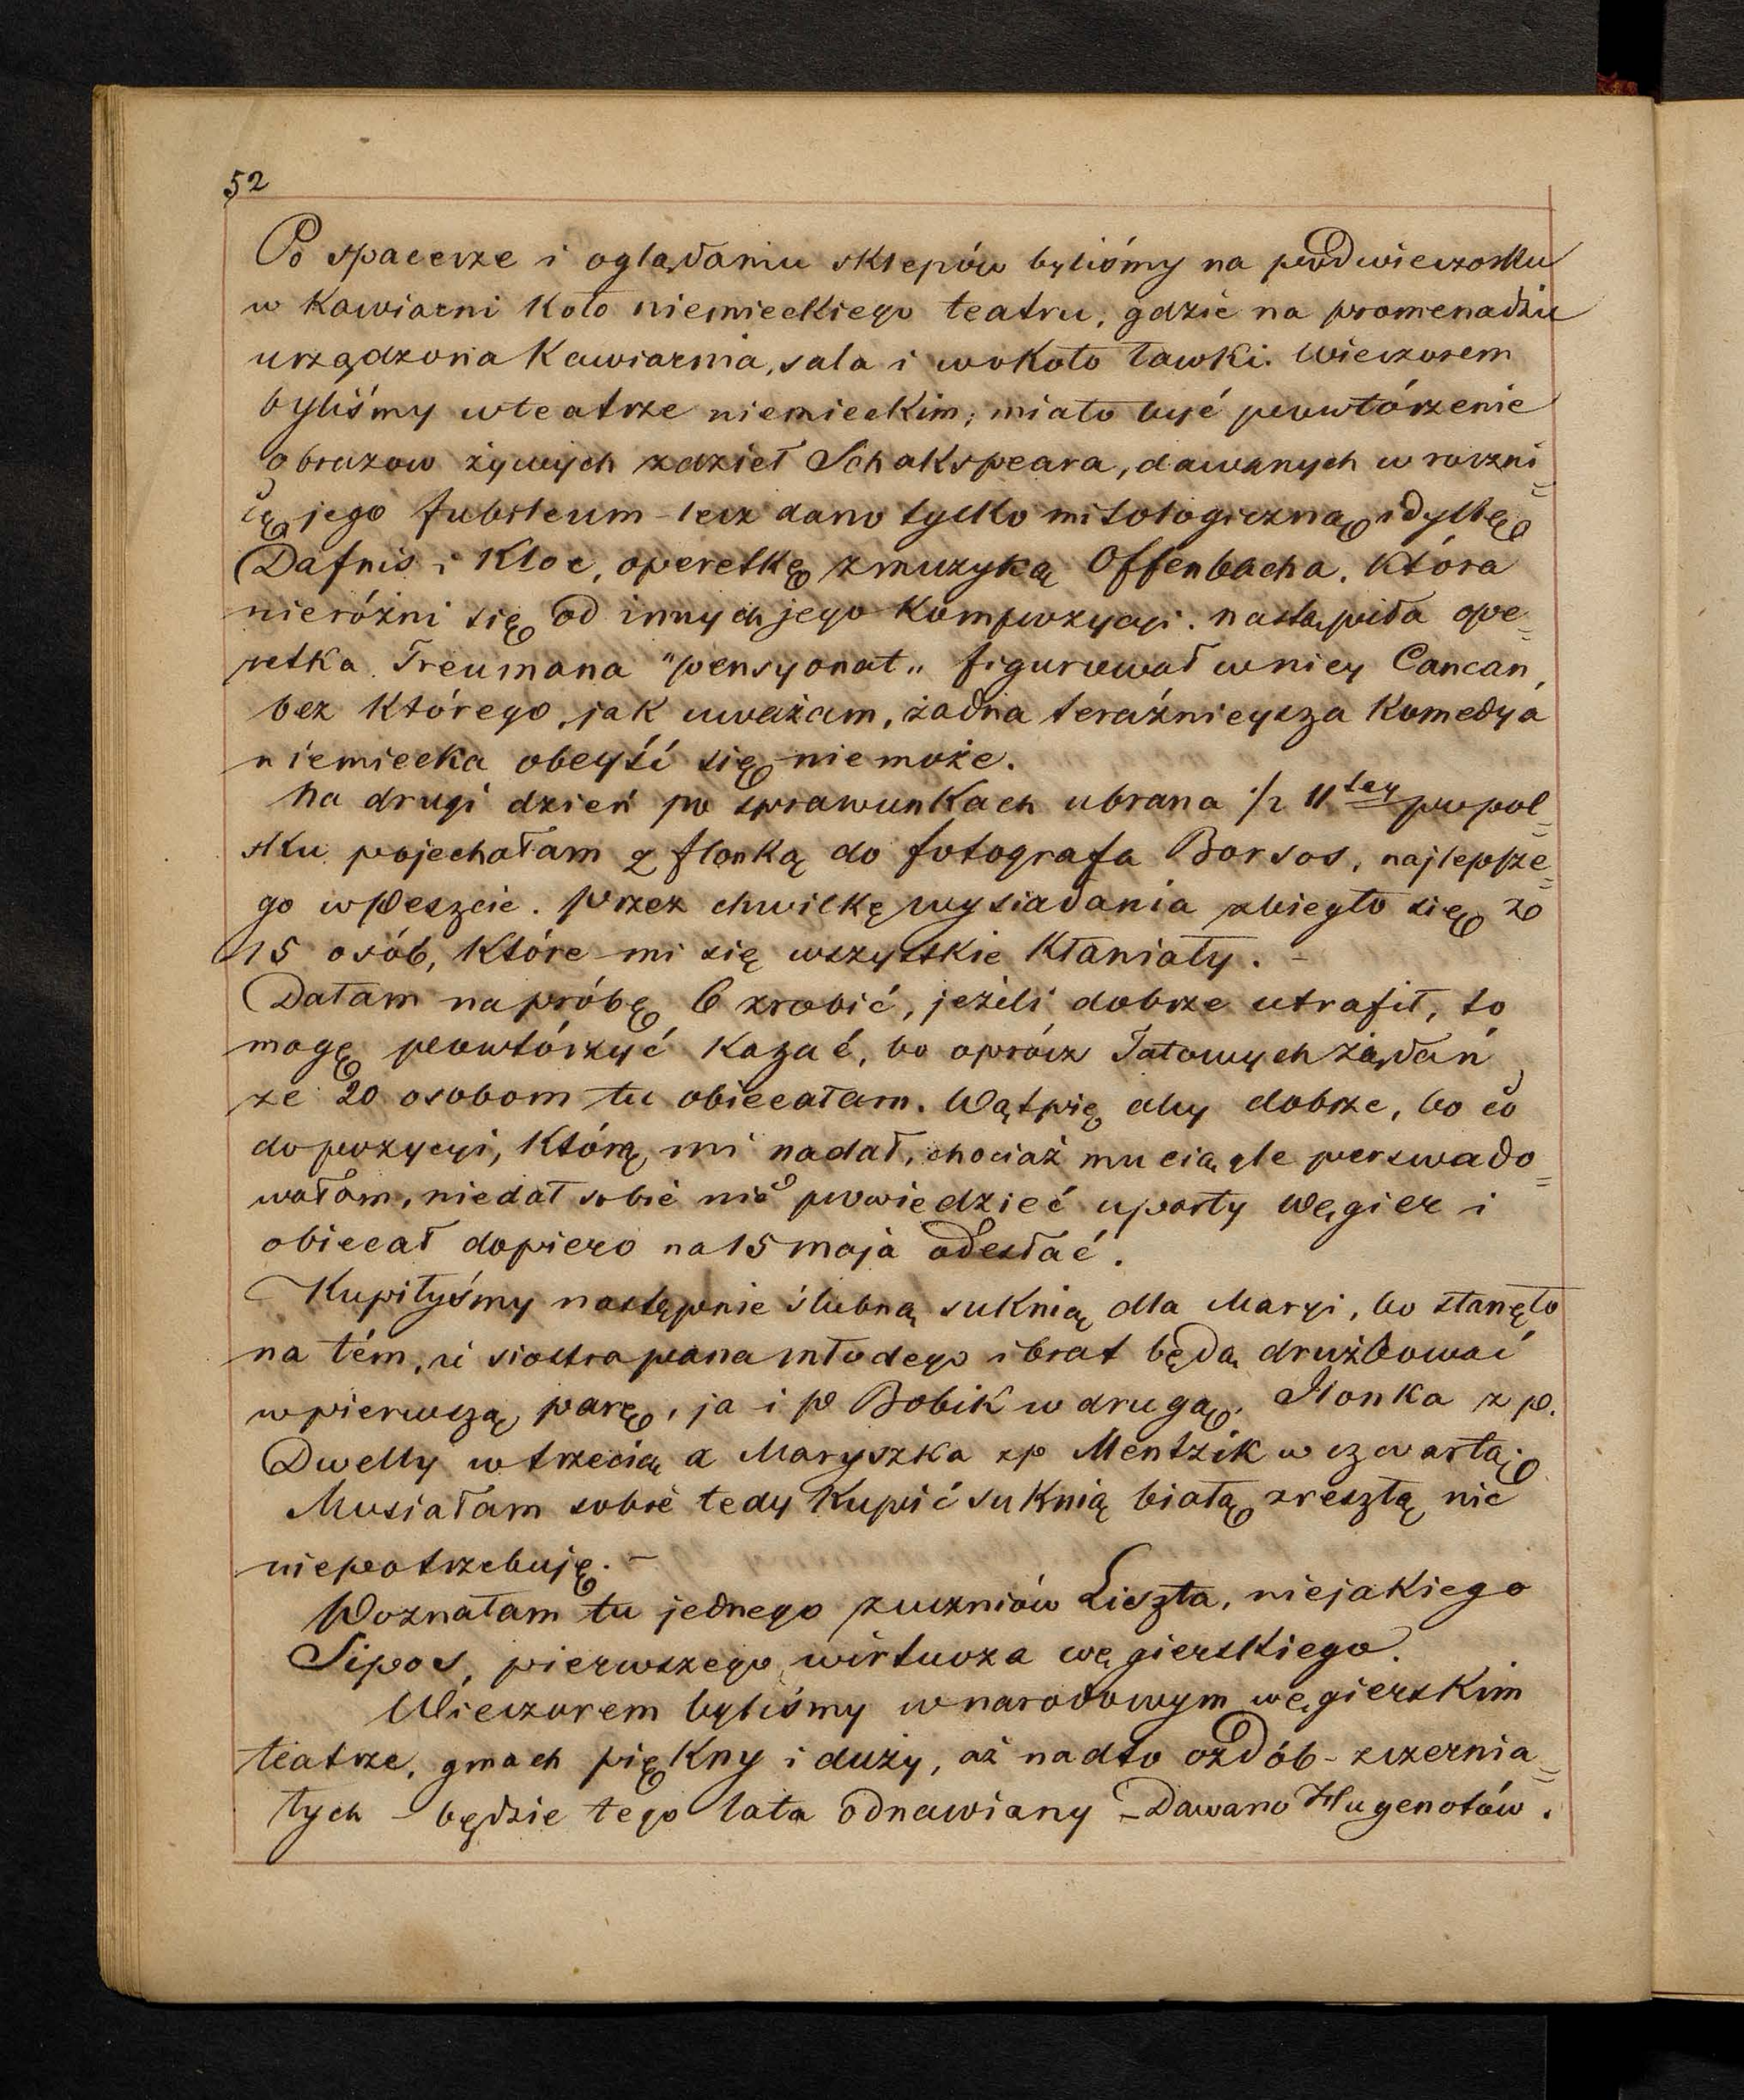 52
Po spacerze i oglądaniu sklepów byliśmy na podwieczorku
w kawiarni koło niemieckiego teatru, gdzie na promenadzie
urządzona kawiarnia, sala i wokoło ławki. Wieczorem
byliśmy w teatrze niemieckim; miało być powtórzenie
obrazow żywych z dzieł Schakspeara, dawanych w roczni=
cę jego Jubileum – lecz dano tylko mitologiczną idyllę
Dafnis i Kloe, operetkę z muzyką Offenbacha, która
nieróżni się od innych jego kompozycyi. nastąpiła ope=
retka Treumana "pensyonat„ figurował w niey Cancan,
bez którego, jak uważam, żadna teraźnieysza komedya
niemiecka obeyść się niemoże.
Na drugi dzień po sprawunkach ubrana ½ 11tey popol=
sku pojechałam z Ilonką do fotografa Borsos, najlepsze=
go w Peszcie. Przez chwilkę wysiadania zbiegło się ze
15 osób, które mi się wszystkie kłaniały. –
Dałam na próbę 6 zrobić, jeżeli dobrze utrafił, to
mogę powtórzyć kazać, bo oprócz Tatowych żądań
ze 20 osobom tu obiecałam. Wątpię aby dobrze, bo co
do pozycyi, którą mi nadał, chociaż mu ciągle perswado=
wałam, niedał sobie nic powiedzieć uparty Węgier i
obiecał dopiero na 15 maja odesłać.
Kupiłyśmy następnie ślubną suknią dla Maryi, bo stanęło
na tém, iż siostra pana młodego i brat będą drużbować
w pierwszą parę, ja i P Bobik w drugą, Ilonka z p.
Dwelly w trzecią a Maryszka z p Mentzik w czwartą.
Musiałam sobie tedy kupić suknią białą zresztą nic
niepotrzebuję. –
Poznałam tu jednego z uczniów Liszta, niejakiego
Sipos, pierwszego wirtuoza węgierskiego.
Wieczorem byliśmy w narodowym węgierskim
teatrze, gmach piękny i duży, aż nadto ozdób – zczernia=
łych – będzie tego lata odnawiany – Dawano Hugenotów.